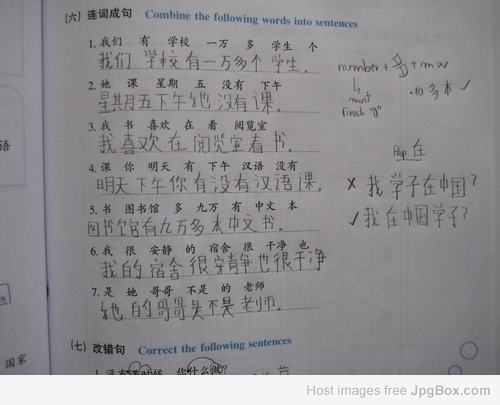 (六) 连词成句 Combine the following words into sentences
1. 我们 有 学校 一万 多 学生 个
我们学校有一万多个学生.
2. 她 课 星期 五 没有 下午
星其月五下午她没有课.
3. 我 书 喜欢 在 看 阅览室
我喜欢在阅览室看书.
4. 课 你 明天 有 下午 汉语 没有
明天下午你有没有汉语课.
5. 书 图书馆 多 九万 有 中文 本
图书馆有九万多本中文书.
6. 我 很 安静 的 宿舍 很 干净 也
我的宿舍很安静也很干净
7. 是 她 哥哥 不是 的 老师
她的哥哥是不是老师.
(七) 改错句 Correct the following sentences
number + 多 + mw
must
finish "0"
·10多本 ✓
Prep 在
× 我学子在中国?
✓ 我在中国学子?
语
国家
Host images free JpgBox.com